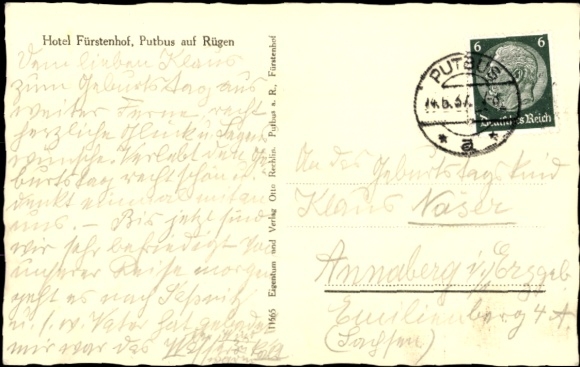 Hotel Fürstenhof, Putbus auf Rügen
Dem lieben Klaus
zum Geburtstag aus
weiter Ferne recht
herzliche Glück u. Segens
wünsche. Verlebt den Ge
burtstag recht schön u.
denkt einmal mit an
uns. – Bis jetzt sind
wir sehr befriedigt von
unserer Reise morgen
geht es nach Saßnitz
u. s. w. Vater hat gebadet
mir war das Wasser zu kalt
11465 Eigentum und Verlag Otto Rechlin, Putbus a. R., Fürstenhof
PUTBUS
14.6.37
a
6 6
Deutsches Reich
An das Geburtstagskind
Klaus Naser
Annaberg i/Erzgeb
Emilienberg 4 A
(Sachsen)